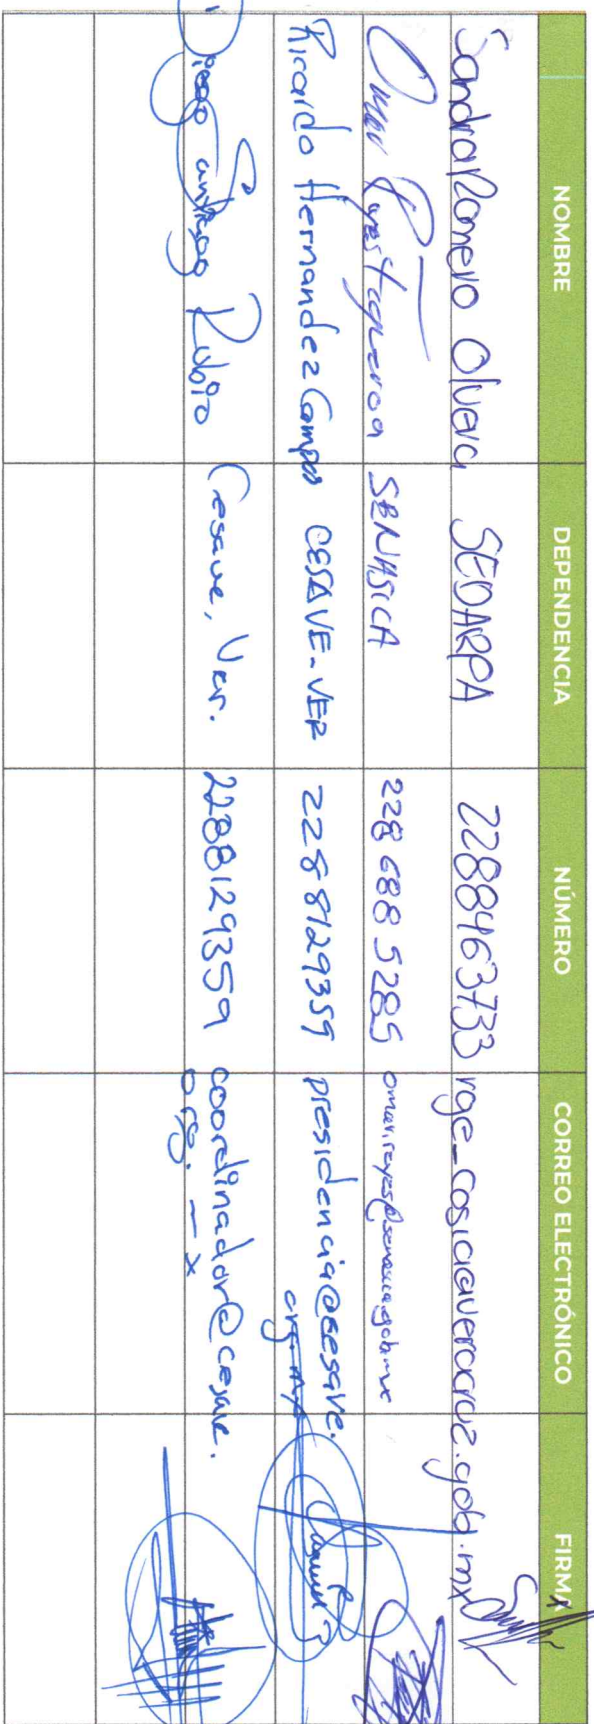 NOMBRE DEPENDENCIA NÚMERO CORREO ELECTRÓNICO FIRMA
Sandra Romero Olvera SEDARPA 2288463733 rge_cosia@veracruz.gob.mx
Omar Reyes Figueroa SENASICA 228 688 5285 omar.reyes@senasica.gob.mx
Ricardo Hernandez Campos CESAVE-VER 228 8129359 presidencia@cesave.
org.mx
Diego Santiago Rubio Cesave, Ver. 2288129359 coordinador@cesave.
org.